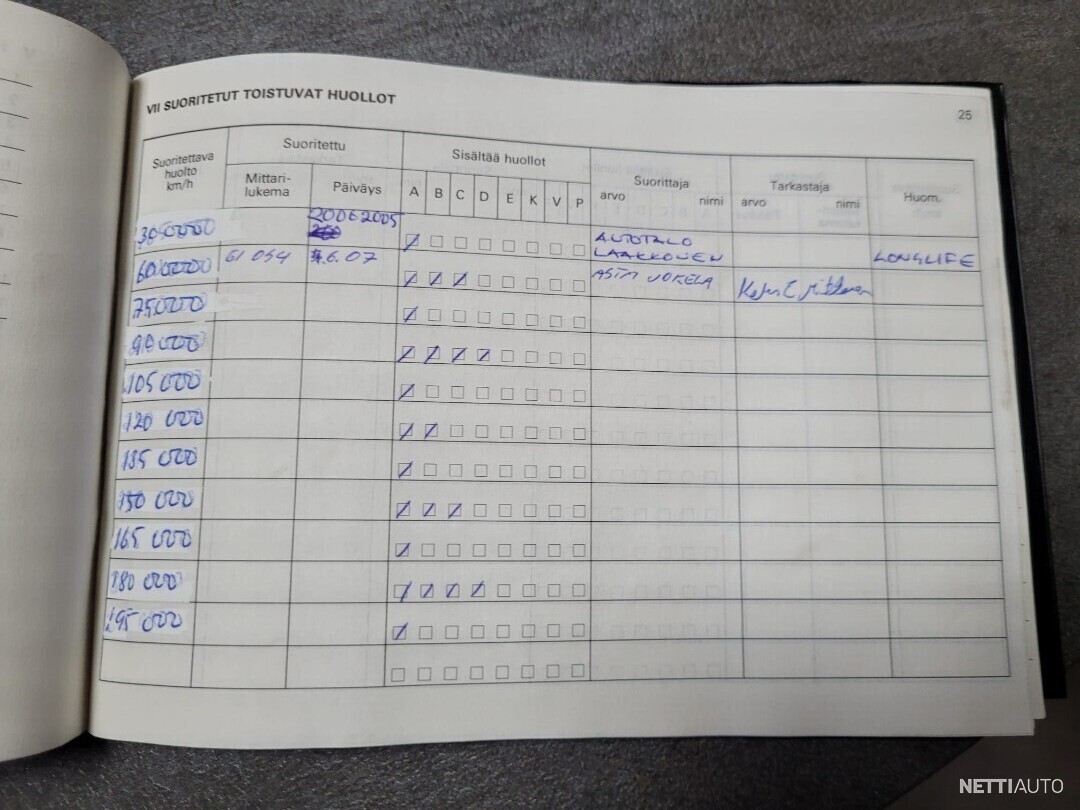 VII SUORITETUT TOISTUVAT HUOLLOT
25
Suoritettava huolto km/h
Suoritettu
Mittari-lukema
Päiväys
Sisältää huollot
A B C D E K V P
Suorittaja
arvo nimi
Tarkastaja
arvo nimi
Huom.
20062005
AUTOTALO LAAKKONEN
LONGLIFE
61 054
.6.07
ASTA JOKELA
75000
90 000
105 000
120 000
135 000
150 000
165 000
180 000
195 000
NETTIAUTO